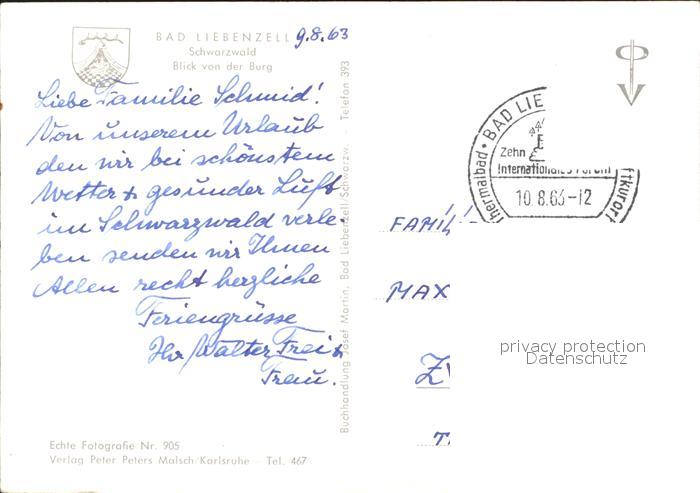 BAD LIEBENZELL 9.8.63
Schwarzwald
Blick von der Burg
Liebe Familie Schmid!
Von unserem Urlaub
den wir bei schönstem
Wetter & gesunder Luft
im Schwarzwald verle-
ben senden wir Ihnen
Allen recht herzliche
Feriengrüsse
Ihr Walter Frei &
Frau.
Echte Fotografie Nr. 905
Verlag Peter Peters Malsch/Karlsruhe — Tel. 467
Buchhandlung Josef Martin, Bad Liebenzell/Schwarzw. - Telefon 393
Thermalbad · BAD LIE
ftkurort
Zehn
Internationales Forum
10.8.63-12
FAMIL
MAX
privacy protection
Datenschutz